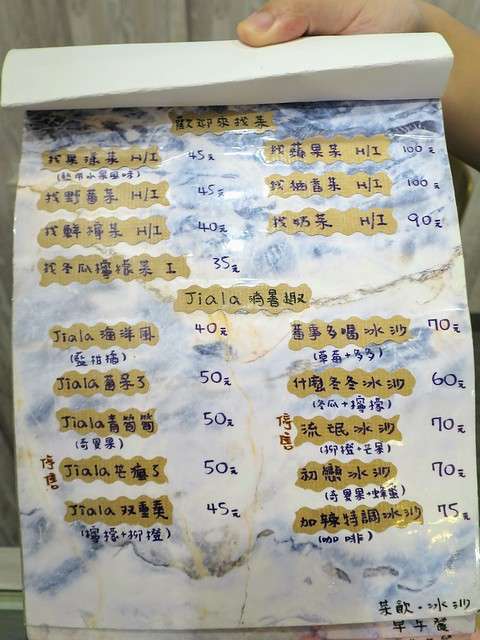 歡迎來找茶
找果漾茶 H/I 45元
(熱帶水果風味)
找野莓茶 H/I 45元
找鮮檸茶 H/I 40元
找冬瓜檸檬茶 I 35元
找蘋果茶 H/I 100元
找柚香茶 H/I 100元
找奶茶 H/I 90元
Jiala 消暑趣
Jiala 海洋風 40元
(藍柑橘)
Jiala 莓呆了 50元
Jiala 青筍筍 50元
(奇異果)
停售
Jiala 芒瘋了 50元
Jiala 双重奏 45元
(檸檬+柳橙)
莓事多喝冰沙 70元
(草莓+多多)
什麼冬冬冰沙 60元
(冬瓜+檸檬)
停售
流氓冰沙 70元
(柳橙+芒果)
初戀冰沙 70元
(奇異果+蜂蜜)
加辣特調冰沙 75元
(咖啡)
茶飲·冰沙
早午餐